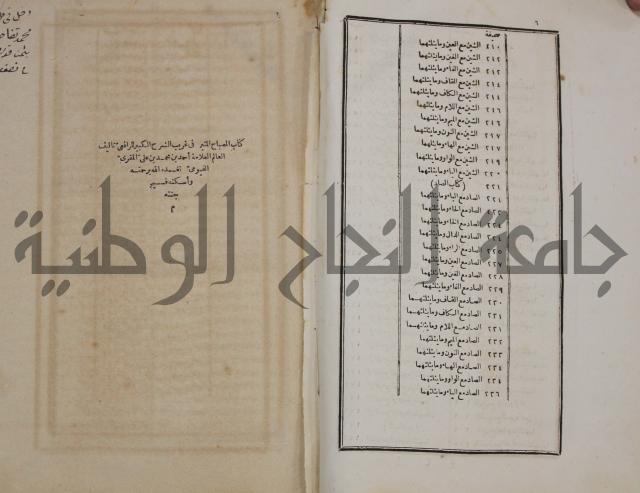 ٦
صحيفة
٢١٠ الشين مع العين وما يثلثهما
٢١٢ الشين مع الغين وما يثلثهما
٢١٢ الشين مع الفاء وما يثلثهما
٢١٤ الشين مع القاف وما يثلثهما
٢١٤ الشين مع الكاف وما يثلثهما
الشين مع اللام وما يثلثهما
الشين مع الميم وما يثلثهما
٢١٧ الشين مع النون وما يثلثهما
٢١٧ الشين مع الهاء وما يثلثهما
٢١٩ الشين مع الواو وما يثلثهما
٢٢٠ الشين مع الياء وما يثلثهما
٢٢١ (كتاب الصاد)
٢٢١ الصاد مع الباء وما يثلثهما
الصاد مع الحاء وما يثلثهما
الصاد مع الخاء وما يثلثهما
الصاد مع الدال وما يثلثهما
٢٢٥ الصاد مع الراء وما يثلثهما
٢٢٧ الصاد مع العين وما يثلثهما
٢٢٨ الصاد مع الغين وما يثلثهما
٢٢٩ الصاد مع الفاء وما يثلثهما
٢٣٠ الصاد مع القاف وما يثلثهما
٢٣١ الصاد مع الكاف وما يثلثهما
٢٣١ الصاد مع اللام وما يثلثهما
٢٣٢ الصاد مع الميم وما يثلثهما
٢٣٣ الصاد مع النون وما يثلثهما
٢٣٤ الصاد مع الهاء وما يثلثهما
٢٣٤ الصاد مع الواو وما يثلثهما
٢٣٦ الصاد مع الياء وما يثلثهما
كتاب المصباح المنير فى غريب الشرح الكبير للرافعى تأليف
العالم العلامة أحمد بن محمد بن على المقرى
الفيومى تغمده الله برحمته
وأسكنه فسيح
جنته
٢
جامعة النجاح الوطنية